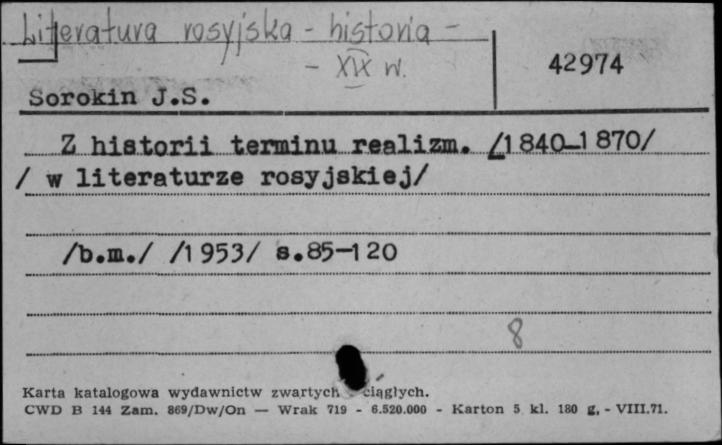 Literatura rosyjska - historia -
- XIX w.
42974
Sorokin J.S.
Z historii terminu realizm. /1840-1870/
/ w literaturze rosyjskiej/
/b.m./ /1953/ s.85-120
8
Karta katalogowa wydawnictw zwartych ciągłych.
CWD B 144 Zam. 869/Dw/On — Wrak 719 - 6.520.000 - Karton 5 kl. 180 g, - VIII.71.